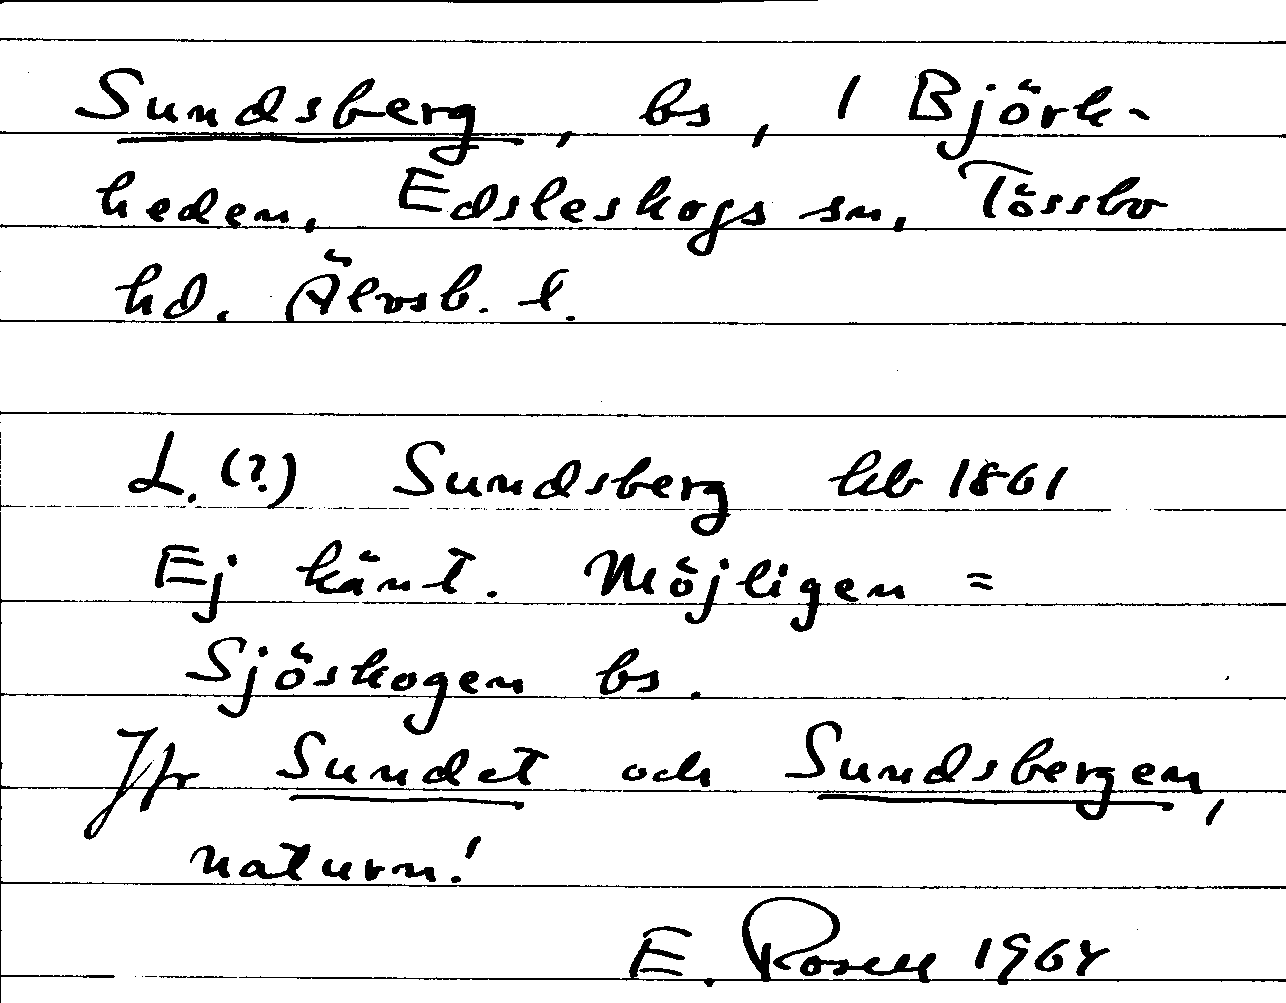 Sundsberg, bs, 1 Björk-
heden, Edsleskogs sn, Tössbo
hd. Älvsb. l.
L. (?) Sundsberg hb 1861
Ej känt. Möjligen =
Sjöskogen bs.
Jfr Sundet och Sundsbergen,
naturn!
E. Rosell 1964